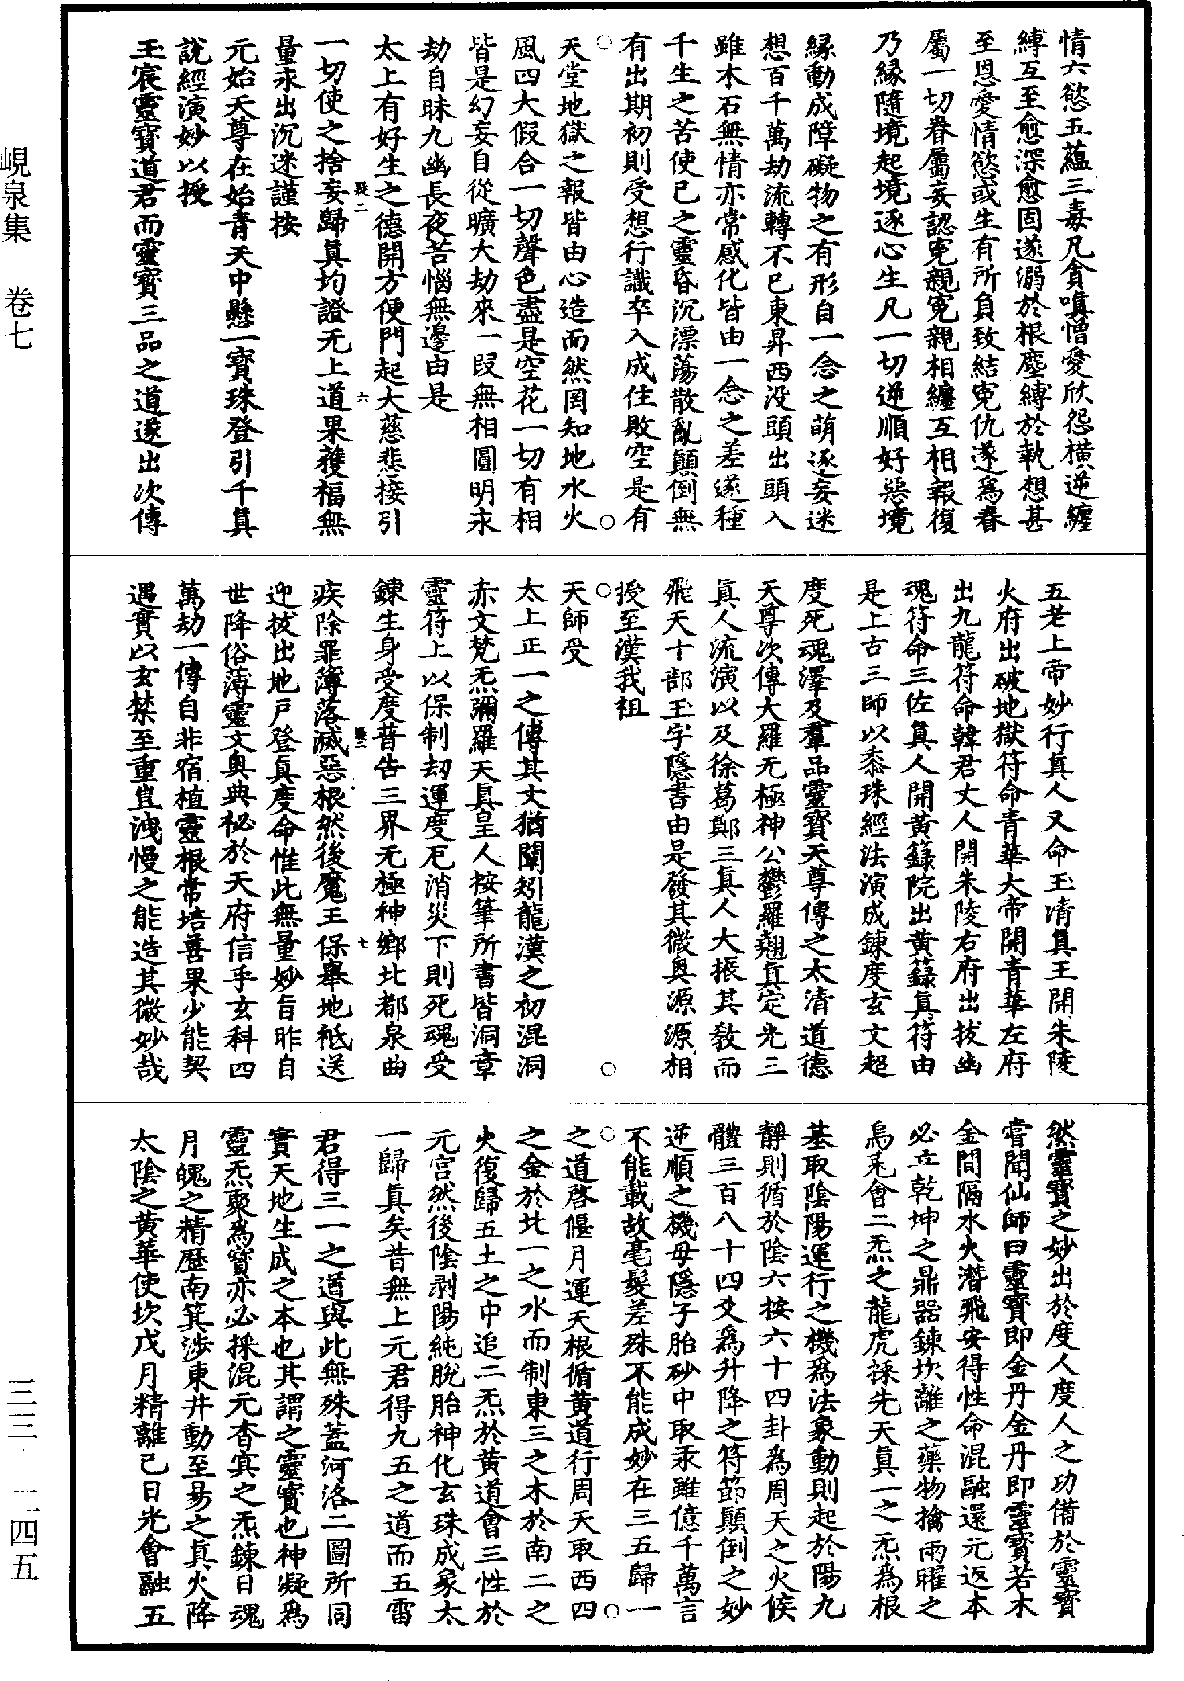 情六慾五蘊三毒凡貪嗔憎愛欣怨橫逆纏
縛互至愈深愈固遂溺於根塵縛於執想甚
至恩愛情慾或生有所負致結冤仇遂為眷
屬一切眷屬妄認冤親冤親相纏互相報復
乃緣隨境起境逐心生凡一切逆順好惡境
緣動成障礙物之有形自一念之萌逐妄迷
想百千萬劫流轉不已東昇西没頭出頭入
雖木石無情亦常感化皆由一念之差遂種
千生之苦使已之靈昏沉漂蕩散亂顛倒無
有出期初則受想行識卒入成住敗空是有
天堂地獄之報皆由心造而然罔知地水火
風四大假合一切聲色盡是空花一切有相
皆是幻妄自從曠大劫來一段無相圓明永
劫自昧九幽長夜苦惱無邊由是
太上有好生之德開方便門起大慈悲接引
一切使之捨妄歸真均證无上道果獲福無
量永出沉迷謹按
元始天尊在始青天中懸一寶珠登引千真
說經演妙以授
玉宸靈寶道君而靈寶三品之道遂出次傳
五老上帝妙行真人又命玉清真王開朱陵
火府出破地獄符命青華大帝開青華左府
出九龍符命韓君丈人開朱陵右府出拔幽
魂符命三佐真人開黃籙院出黃籙真符由
是上古三師以黍珠經法演成鍊度玄文超
度死魂澤及羣品靈寶天尊傳之太清道德
天尊次傳大羅无極神公鬱羅翹真定光三
真人流演以及徐葛鄭三真人大振其教而
飛天十部玉字隱書由是發其微奥源源相
授至漢我祖
天師受
太上正一之傳其文猶闡矧龍漢之初混洞
赤文梵炁彌羅天真皇人按筆所書皆洞章
靈符上以保制劫運度厄消災下則死魂受
鍊生身受度普告三界无極神鄉北都泉曲
疾除罪簿落滅惡根然後魔王保舉地祇送
迎拔出地戶登真度命惟此無量妙旨昨自
世降俗薄靈文奥典秘於天府信乎玄科四
萬劫一傳自非宿植靈根常培善果少能契
遇實以玄禁至重豈洩慢之能造其微妙哉
然靈寶之妙出於度人度人之功備於靈寶
嘗聞仙師曰靈寶即金丹金丹即靈寶若木
金間隔水火潛飛安得性命混融還元返本
必立乾坤之鼎器鍊坎離之藥物擒兩曜之
烏兔會二炁之龍虎採先天真一之炁為根
基取陰陽運行之機為法象動則起於陽九
靜則循於陰六按六十四卦為周天之火候
體三百八十四爻為升降之符節顛倒之妙
逆順之機母隱子胎砂中取汞雖億千萬言
不能載故毫髮差殊不能成妙在三五歸一
之道啓偃月運天根循黃道行周天取西四
之金於北一之水而制東三之木於南二之
火復歸五土之中追二炁於黃道會三性於
元宮然後陰剥陽純脫胎神化玄珠成象太
一歸真矣昔無上元君得九五之道而五雷
君得三一之道與此無殊蓋河洛二圖所同
實天地生成之本也其謂之靈寶也神凝為
靈炁聚為寶亦必採混元杳冥之炁鍊日魂
月魄之精歷南箕涉東井動至易之真火降
太陰之黃華使坎戊月精離己日光會融五
疑二
六
疑二
七
峴泉集　卷七
三三·二四五